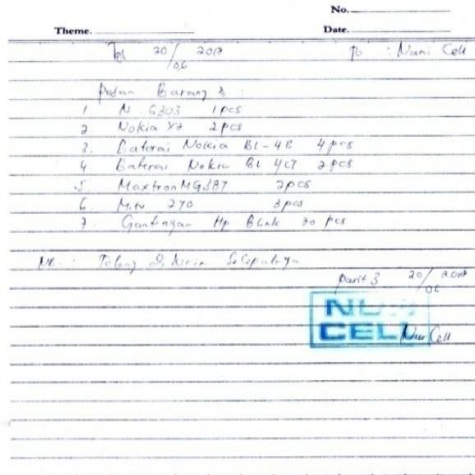 No.
Theme. Date.
Tgl 20/06 2012 To : Nani Cell
Pesan Barang 2 :
1 N 6303 1 pcs
2 Nokia X2 2 pcs
3. Baterai Nokia BL-4B 4 pcs
4 Baterai Nokia BL 4CT 2 pcs
5. Maxtron MG287 2 pcs
6. Mito 270 3 pcs
7 Gantungan Hp 20 pcs
Nb : Tolong Di kirim Secepatnya
Parit 3 20/06 2012
NUR
CELL Nur Cell